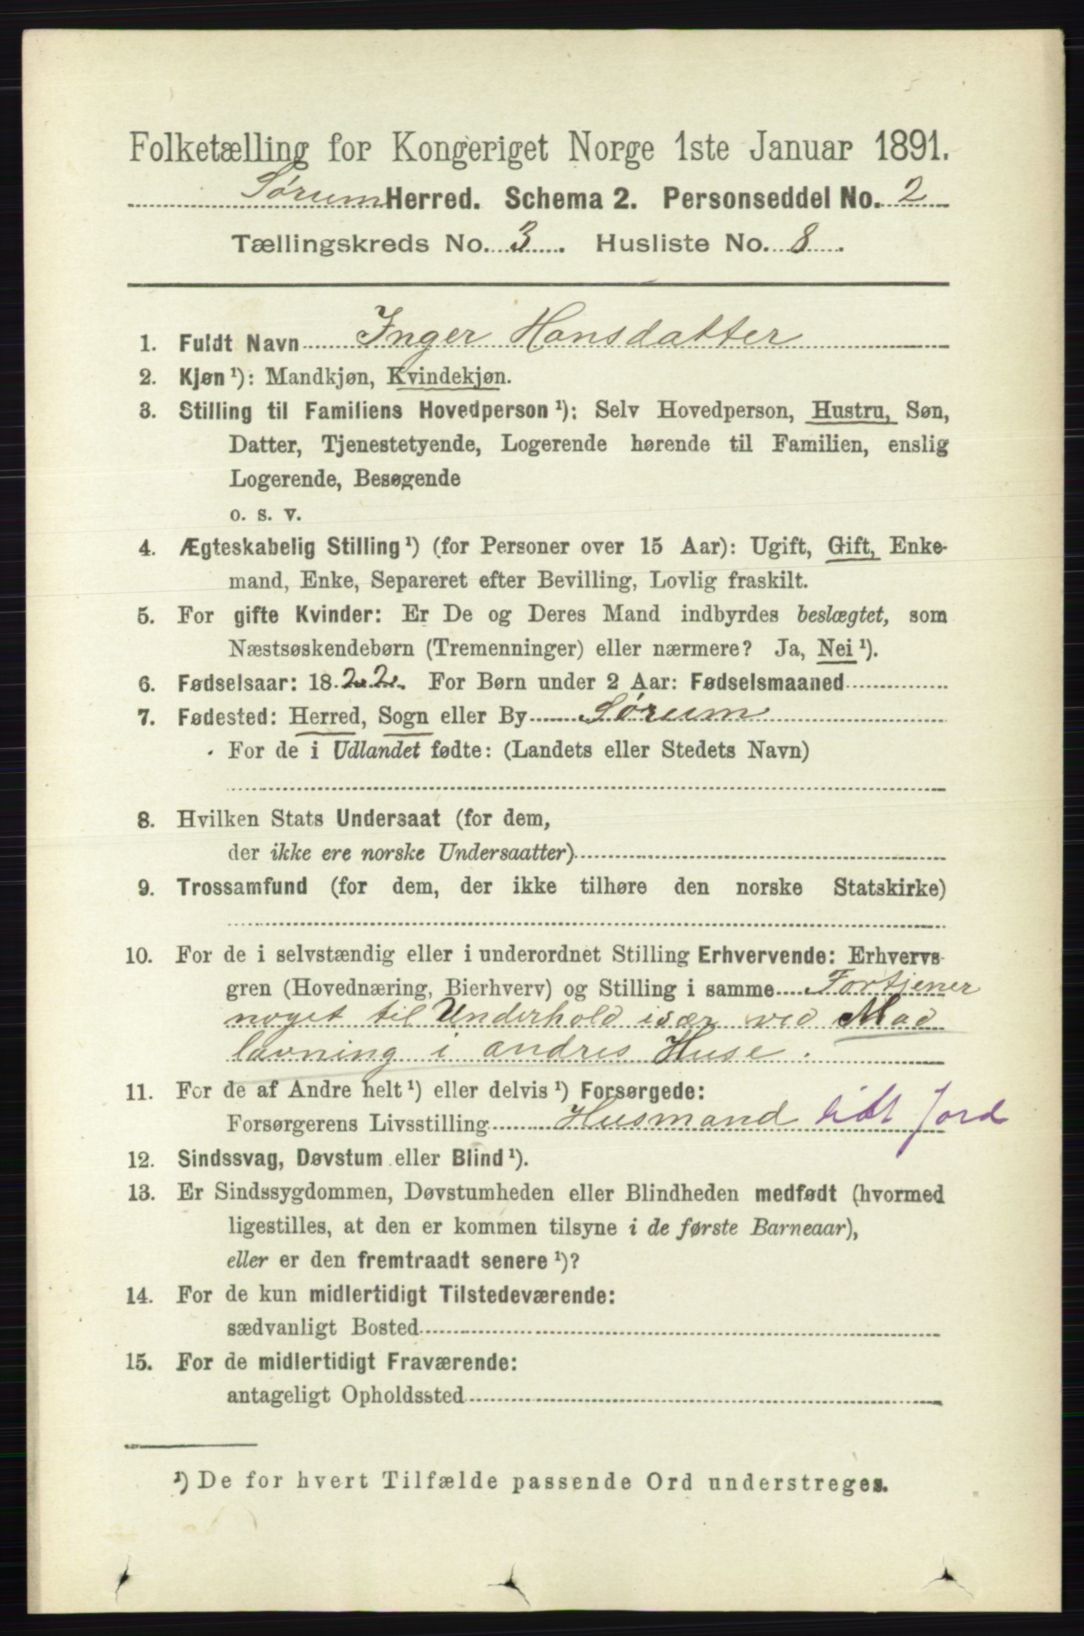 Folketælling for Kongeriget Norge 1ste Januar 1891.
Sørum Herred. Schema 2. Personseddel No. 2
Tællingskreds No. 3. Husliste No. 8.
1. Fuldt Navn Inger Hansdatter
2. Kjøn¹): Mandkjøn, Kvindekjøn.
3. Stilling til Familiens Hovedperson¹): Selv Hovedperson, Hustru, Søn,
Datter, Tjenestetyende, Logerende hørende til Familien, enslig
Logerende, Besøgende
o. s. v.
4. Ægteskabelig Stilling¹) (for Personer over 15 Aar): Ugift, Gift, Enke-
mand, Enke, Separeret efter Bevilling, Lovlig fraskilt.
5. For gifte Kvinder: Er De og Deres Mand indbyrdes beslægtet, som
Næstsøskendebørn (Tremenninger) eller nærmere? Ja, Nei¹).
6. Fødselsaar: 1822. For Børn under 2 Aar: Fødselsmaaned
7. Fødested: Herred, Sogn eller By Sørum
For de i Udlandet fødte: (Landets eller Stedets Navn)
8. Hvilken Stats Undersaat (for dem,
der ikke ere norske Undersaatter)
9. Trossamfund (for dem, der ikke tilhøre den norske Statskirke)
10. For de i selvstændig eller i underordnet Stilling Erhvervende: Erhvervs-
gren (Hovednæring, Bierhverv) og Stilling i samme Fortjener
noget til Underhold især ved Mad
lavning i andres Huse.
11. For de af Andre helt¹) eller delvis¹) Forsørgede:
Forsørgerens Livsstilling Husmand lidt Jord
12. Sindssvag, Døvstum eller Blind¹).
13. Er Sindssygdommen, Døvstumheden eller Blindheden medfødt (hvormed
ligestilles, at den er kommen tilsyne i de første Barneaar),
eller er den fremtraadt senere¹)?
14. For de kun midlertidigt Tilstedeværende:
sædvanligt Bosted
15. For de midlertidigt Fraværende:
antageligt Opholdssted
¹) De for hvert Tilfælde passende Ord understreges.